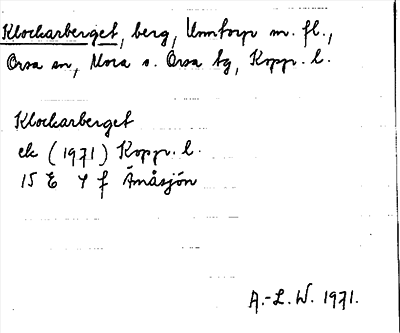 Klockarberget, berg, Unntorp m. fl.,
Orsa sn, Mora o. Orsa tg, Kopp. l.
Klockarberget
ek (1971) Kopp. l.
15 E 4 f Ämåsjön
A.-L. W. 1971.